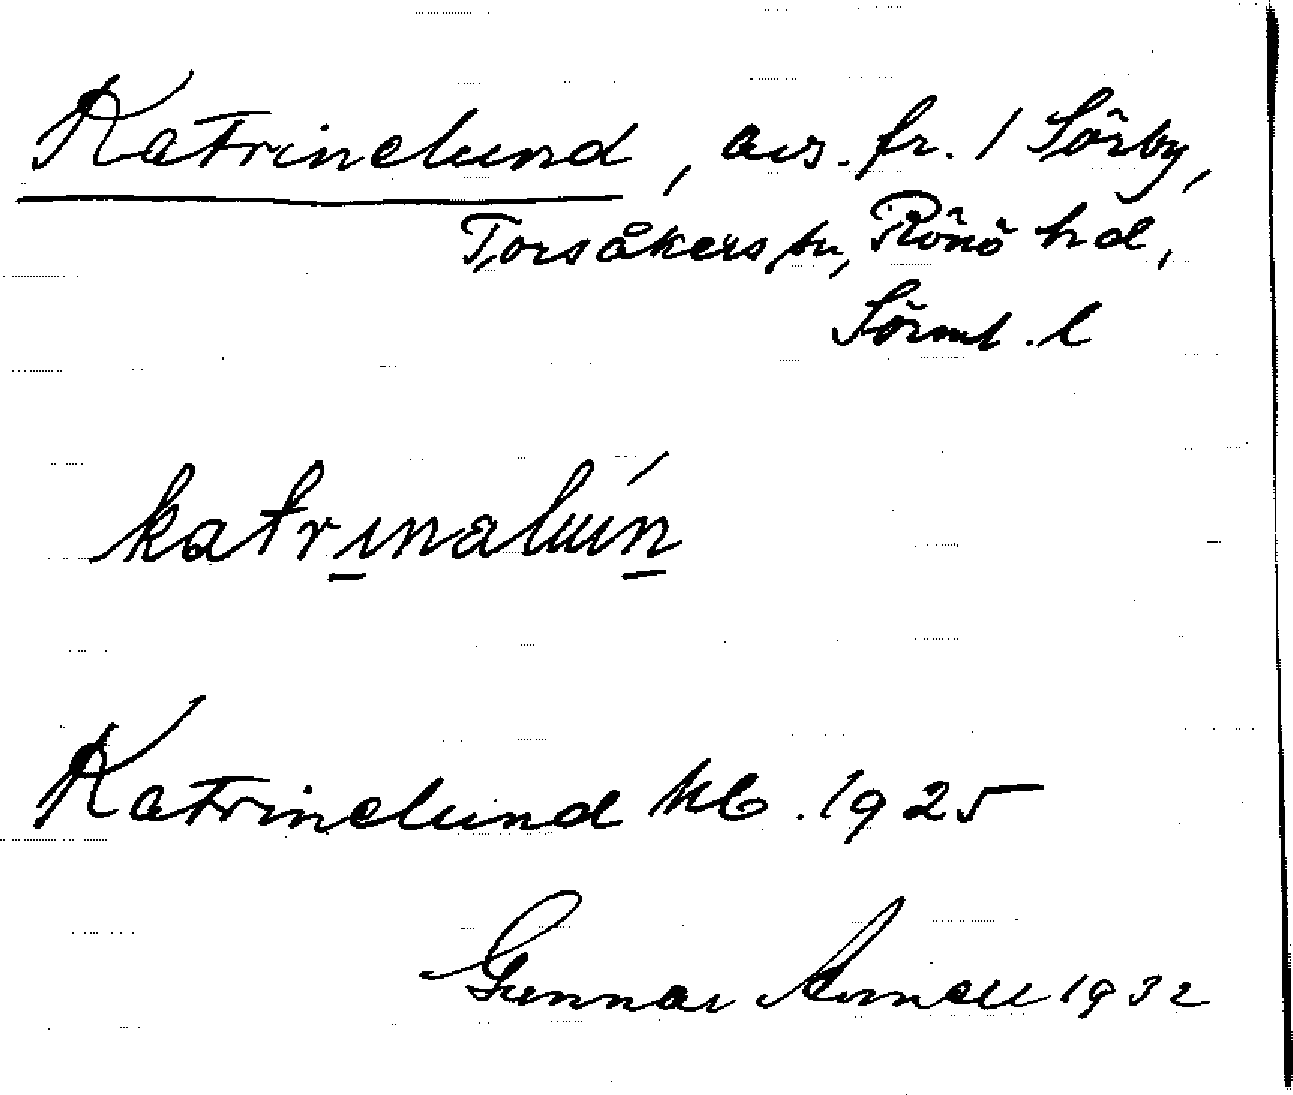 Katrinelund, avs. fr. 1 Sörby,
Torsåkers sn, Rönö hd,
Sörml. l
katrinalún
Katrinelund kb. 1925
Gunnar Arnell 1932